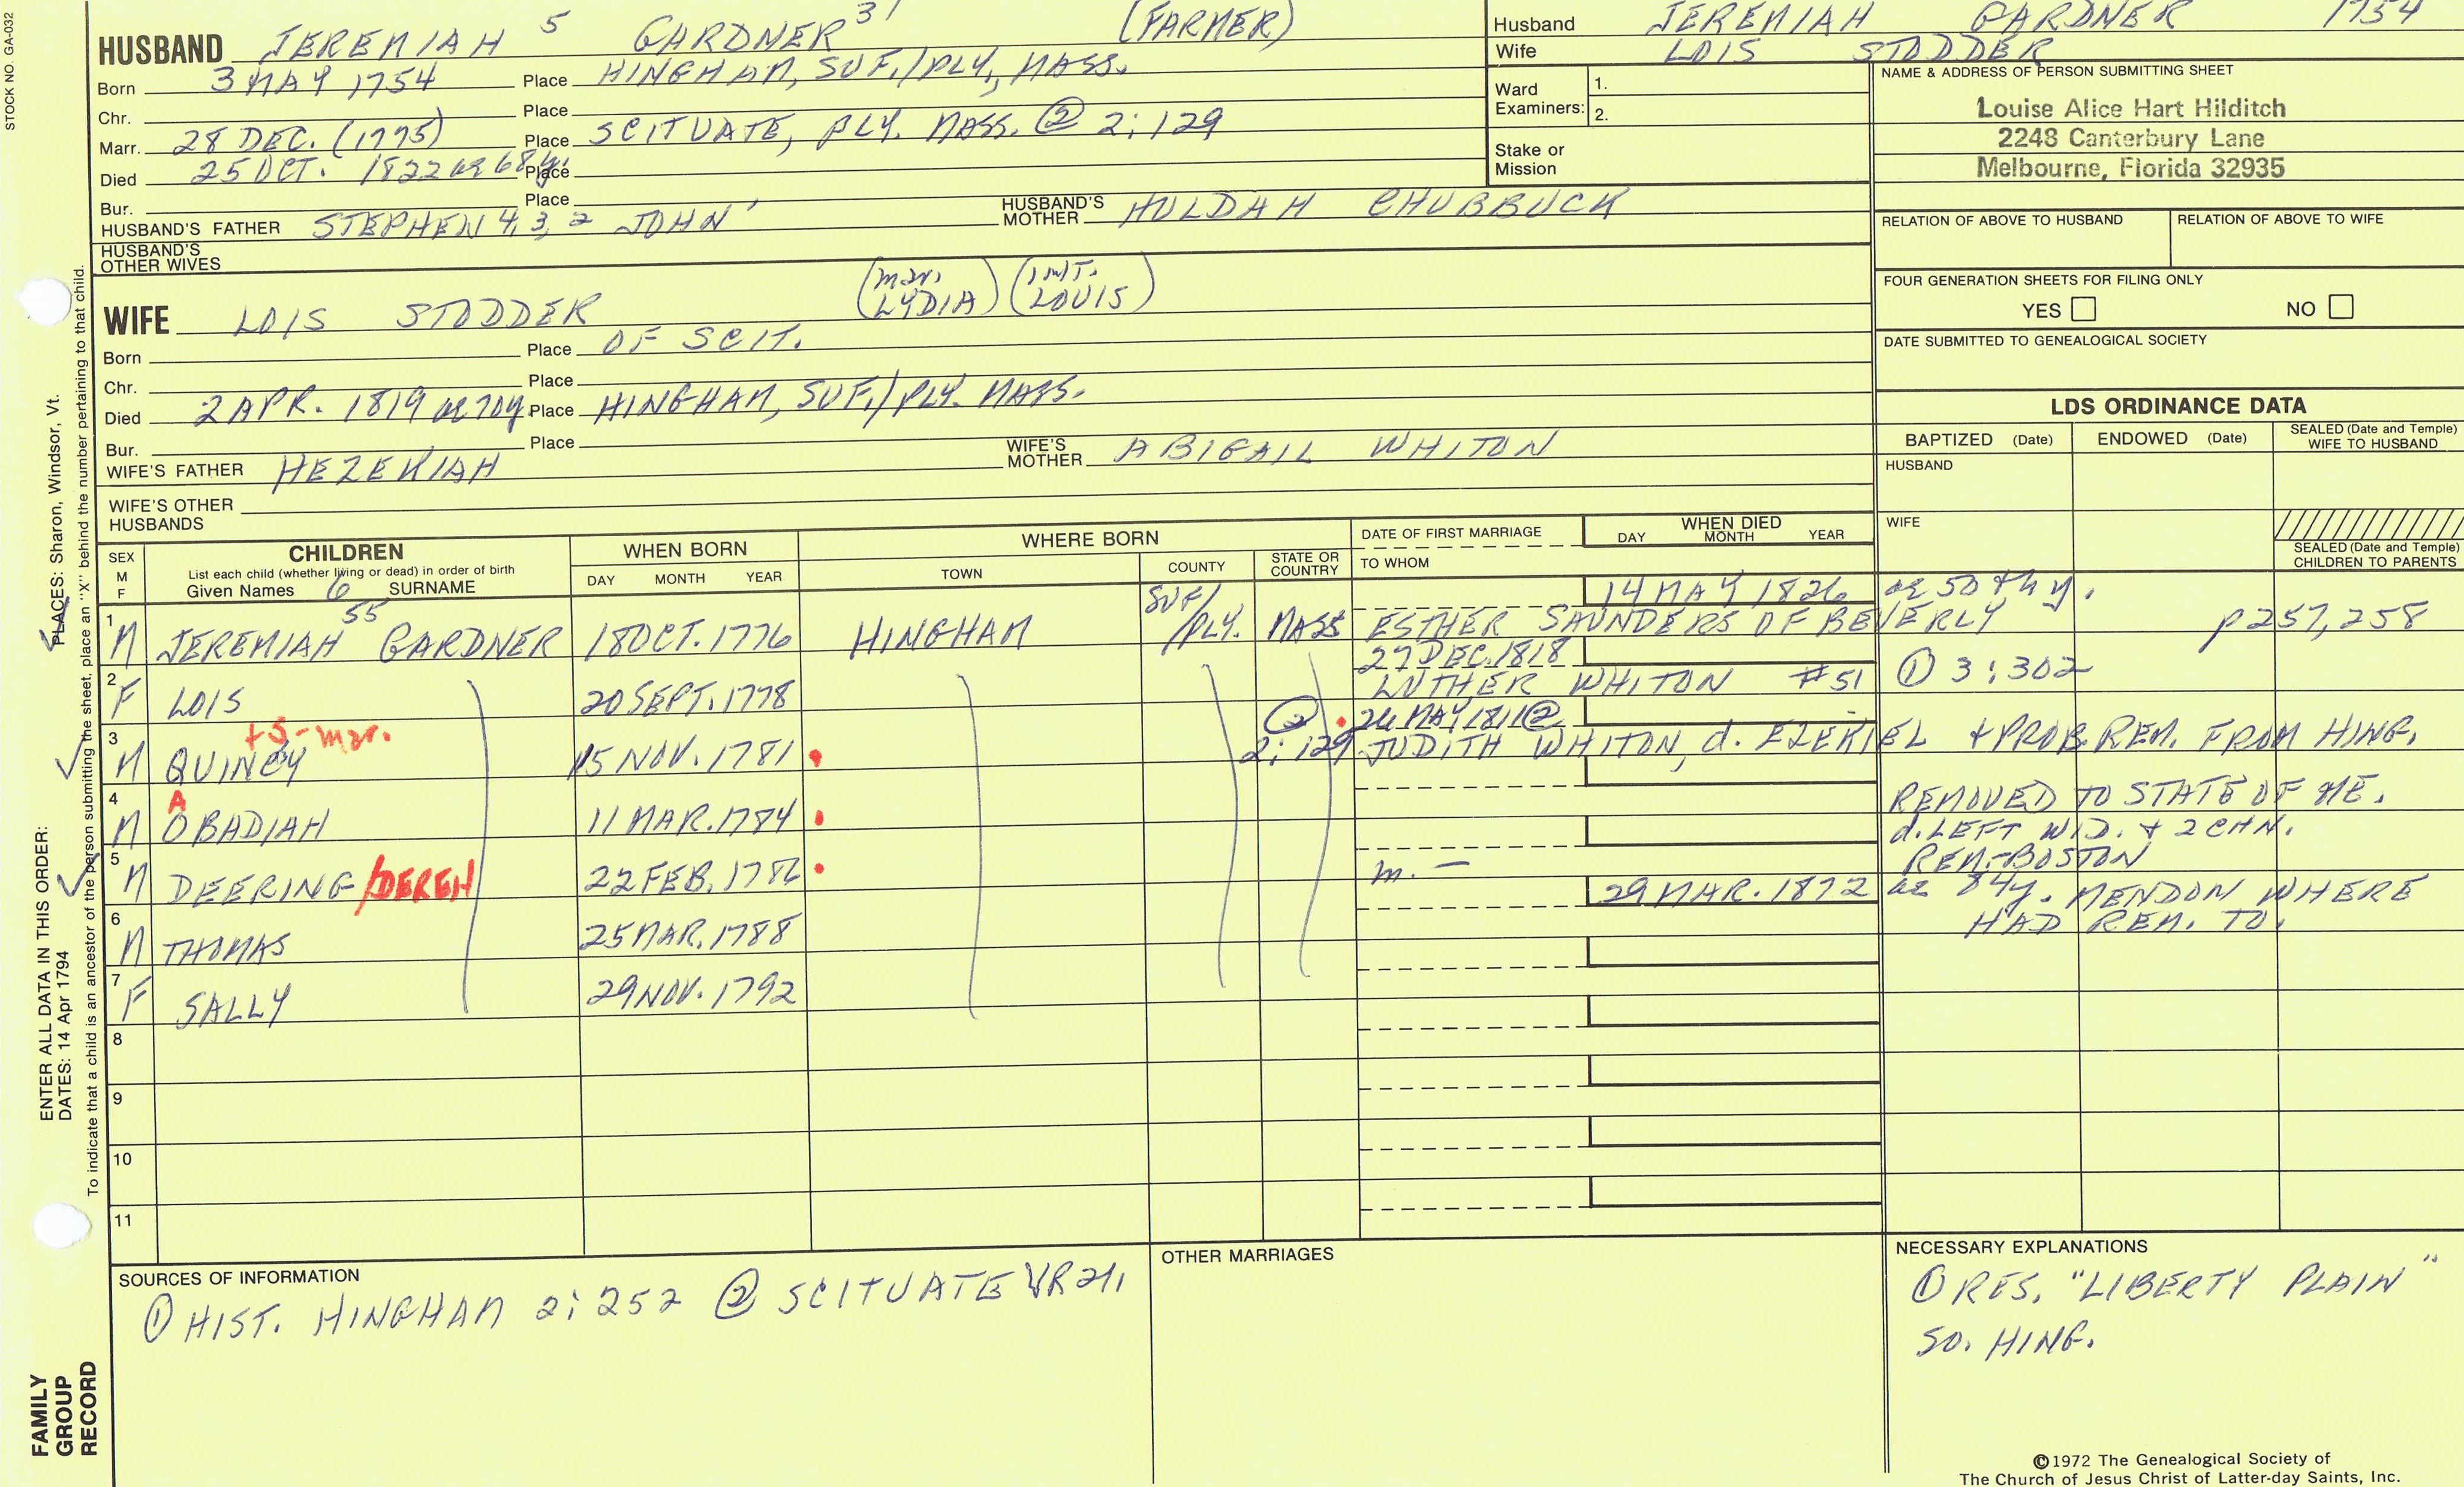 STOCK NO. GA-032
HUSBAND JEREMIAH 5 GARDNER 31 (FARMER)
Born 3 MAY 1754 Place HINGHAM, SUF./PLY., MASS.
Chr. Place
Marr. 28 DEC. (1775) Place SCITUATE, PLY. MASS. ② 2:129
Died 25 OCT. 1822 ae 68y. Place
Bur. Place
HUSBAND'S FATHER STEPHEN 4, 3, 2 JOHN 1 HUSBAND'S MOTHER HULDAH CHUBBUCK
HUSBAND'S OTHER WIVES
WIFE LOIS STODDER (mar. LYDIA) (INT. LOUIS)
Born Place OF SCIT.
Chr. Place
Died 2 APR. 1819 ae 70y. Place HINGHAM, SUF./PLY. MASS.
Bur. Place
WIFE'S FATHER HEZEKIAH WIFE'S MOTHER ABIGAIL WHITON
WIFE'S OTHER HUSBANDS
Husband JEREMIAH GARDNER 1754
Wife LOIS STODDER
Ward Examiners: 1.
2.
Stake or Mission
NAME & ADDRESS OF PERSON SUBMITTING SHEET
Louise Alice Hart Hilditch
2248 Canterbury Lane
Melbourne, Florida 32935
RELATION OF ABOVE TO HUSBAND RELATION OF ABOVE TO WIFE
FOUR GENERATION SHEETS FOR FILING ONLY
YES NO
DATE SUBMITTED TO GENEALOGICAL SOCIETY
LDS ORDINANCE DATA
BAPTIZED (Date) ENDOWED (Date) SEALED (Date and Temple) WIFE TO HUSBAND
HUSBAND
WIFE
SEALED (Date and Temple) CHILDREN TO PARENTS
SEX M F CHILDREN WHEN BORN WHERE BORN DATE OF FIRST MARRIAGE WHEN DIED
List each child (whether living or dead) in order of birth
Given Names 6 SURNAME DAY MONTH YEAR TOWN COUNTY STATE OR COUNTRY TO WHOM DAY MONTH YEAR
14 MAY 1826 ae 50th y.
1 M JEREMIAH 55 GARDNER 18 OCT. 1776 HINGHAM SUF/PLY. MASS ESTHER SAUNDERS OF BEVERLY p257, 258
27 DEC. 1818
2 F LOIS 20 SEPT. 1778 LUTHER WHITON #51 ① 3:302
+5-mar. ② 26 MAY 1811 ②
3 M QUINCY 15 NOV. 1781 2:129 JUDITH WHITON, d. EZEKIEL + PROB. REM. FROM HING.
A
4 M OBADIAH 11 MAR. 1784 REMOVED TO STATE OF ME.
d. LEFT WID. + 2 CHN.
5 M DEERING /DEREH 22 FEB. 1786 m. – REM.-BOSTON
29 MAR. 1872 ae 84y. MENDON WHERE
6 M THOMAS 25 MAR. 1788 HAD REM. TO.
7 F SALLY 29 NOV. 1792
8
9
10
11
SOURCES OF INFORMATION
① HIST. HINGHAM 2:252 ② SCITUATE VR 2:1
OTHER MARRIAGES
NECESSARY EXPLANATIONS
① RES. "LIBERTY PLAIN"
SO. HING.
©1972 The Genealogical Society of
The Church of Jesus Christ of Latter-day Saints, Inc.
ENTER ALL DATA IN THIS ORDER:
DATES: 14 Apr 1794 PLACES: Sharon, Windsor, Vt.
To indicate that a child is an ancestor of the person submitting the sheet, place an "X" behind the number pertaining to that child.
FAMILY
GROUP
RECORD